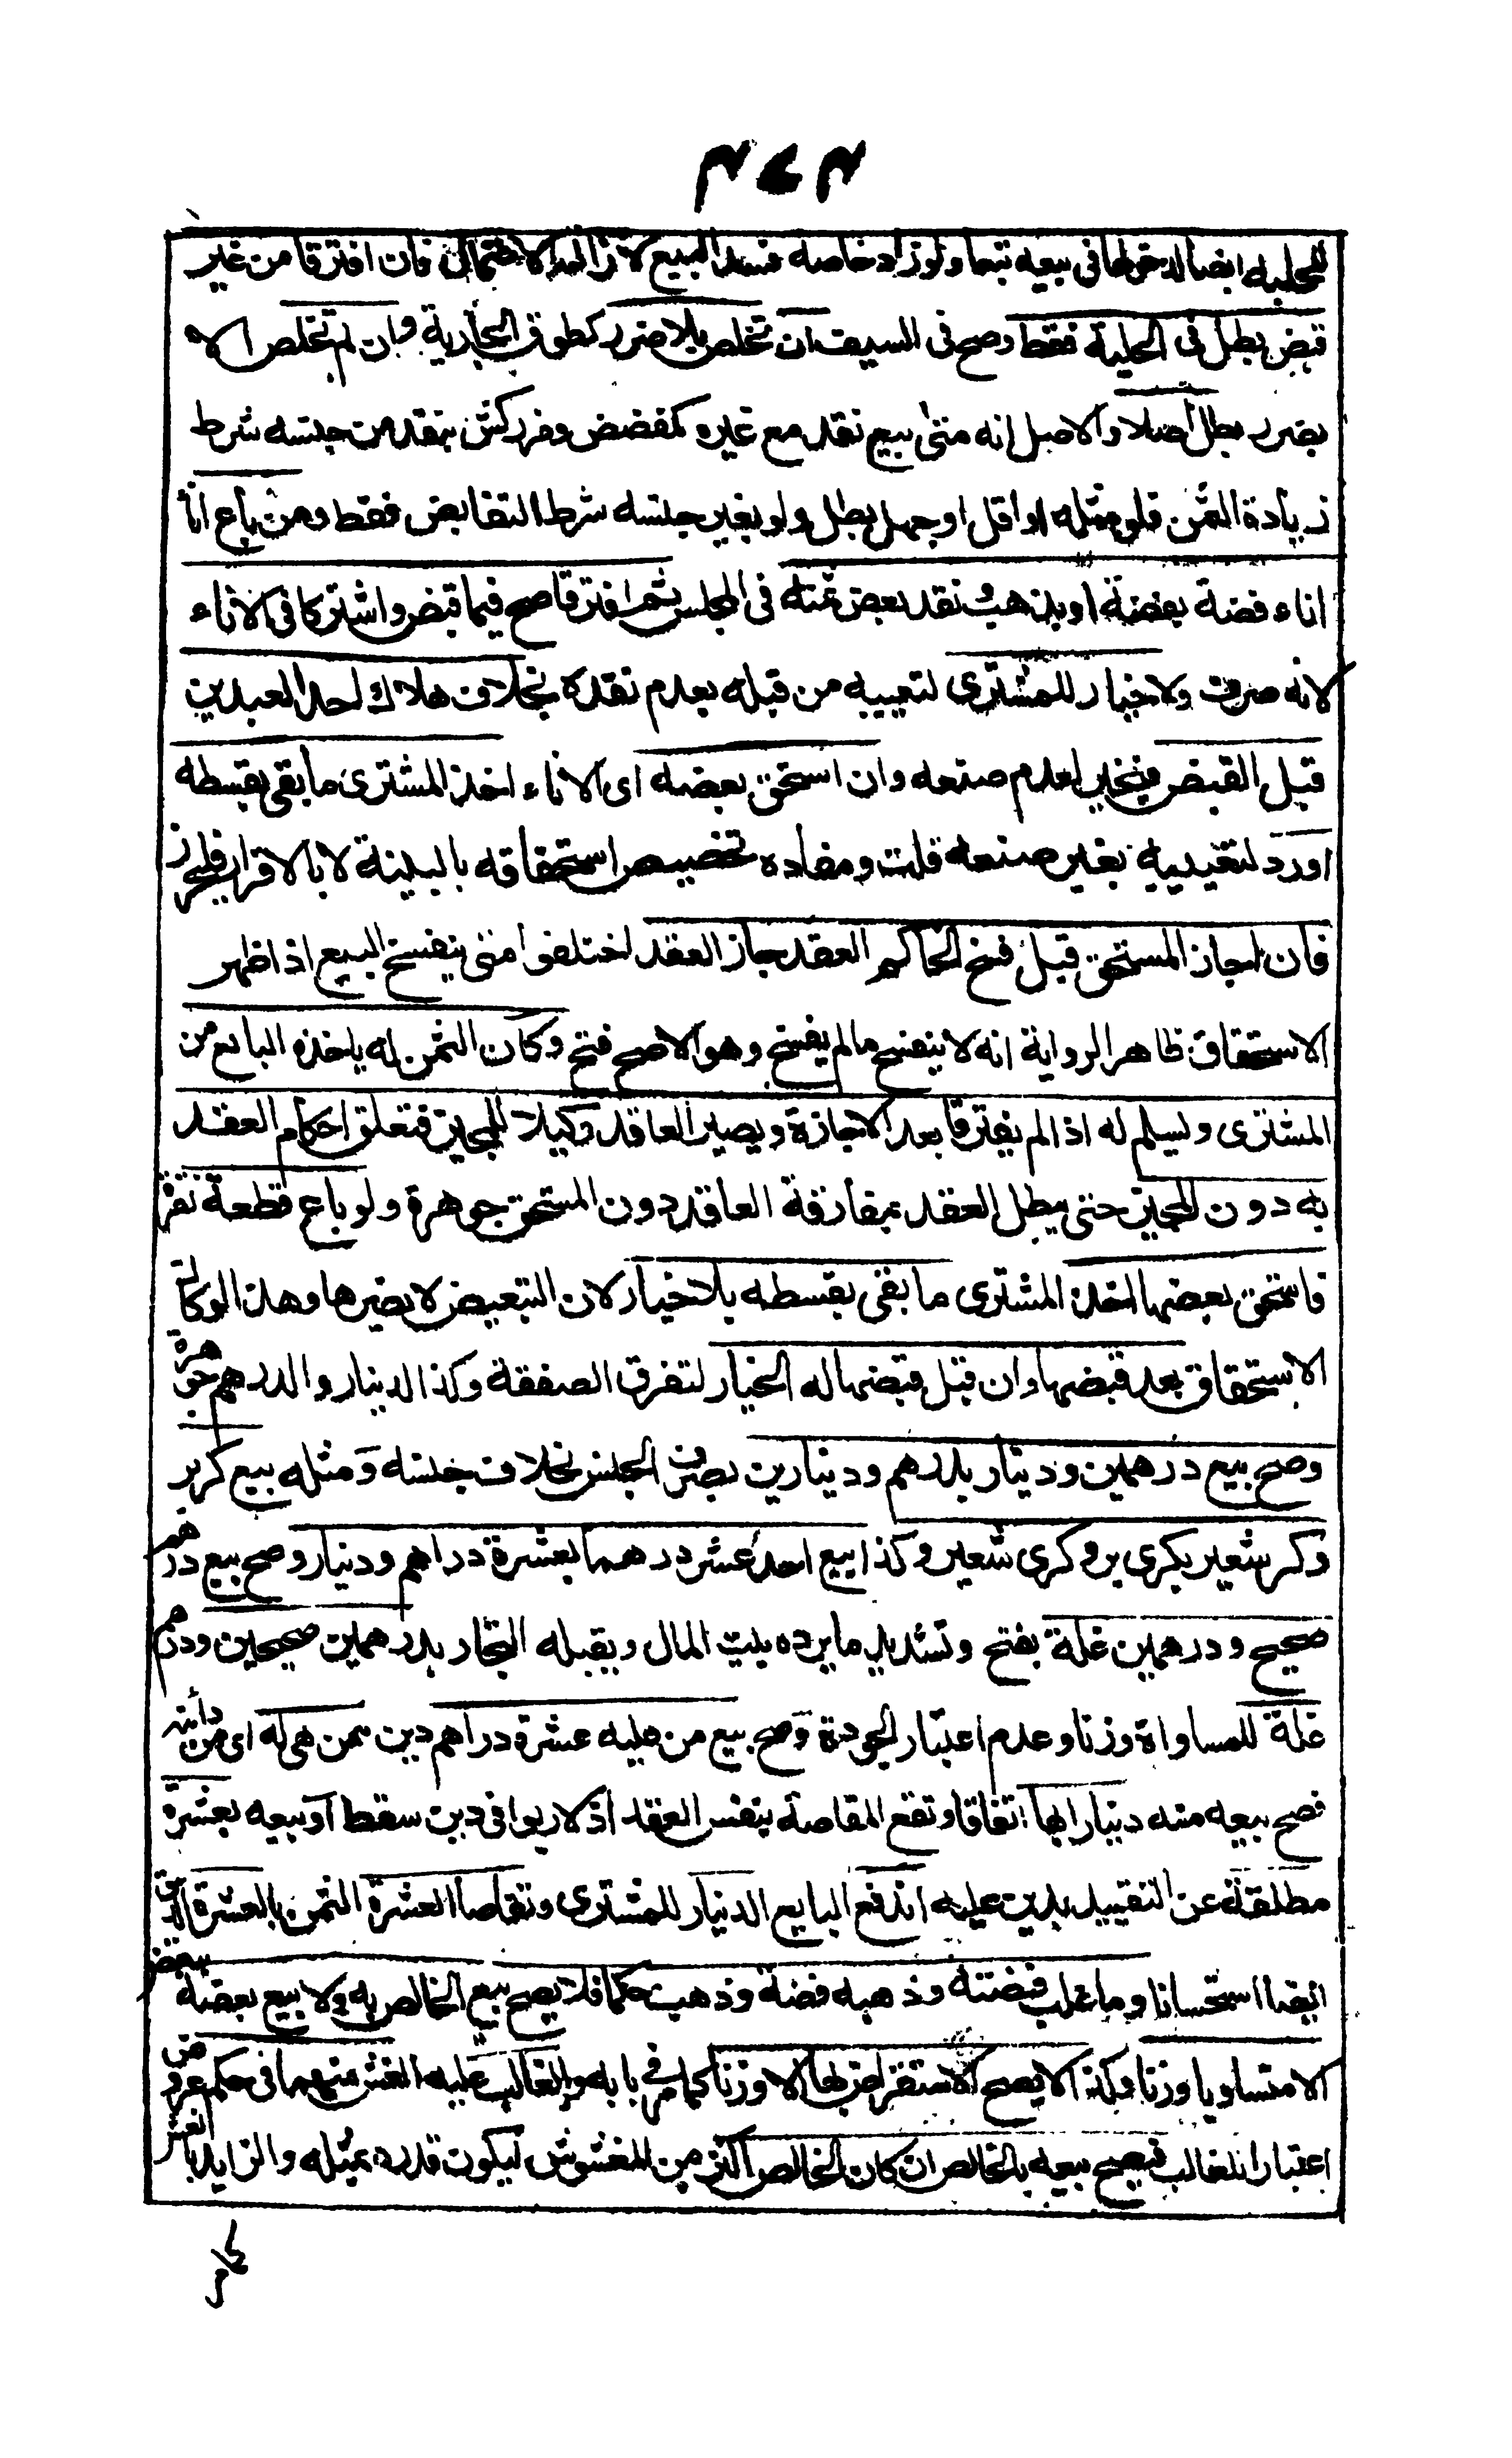 ٣٤٣
للحلية ايضا لدخولها في بيعه تبعا ولو زاد خاصه فسد البيع لازالة الاحتمال فان افترقا من غير
قبض بطل في الحلية فقط وصح في السيف ان تخلص بلا ضرر كطوق الجارية وان لم تخلص الا
بضرر بطل اصلا والاصل انه متى بيع نقد مع غيره كمفضض ومزركش بنقد من جنسه شرط
زيادة الثمن فلو مثله او اقل او جهل بطل ولو بغير جنسه شرط التقابض فقط ومن باع انا
اناء فضة بفضة او بذهب ونقد بعض ثمنه في المجلس ثم افترقا صح فيما قبض واشتركا في الاناء
لانه صرف ولا خيار للمشترى لتعيبه من قبله بعدم نقده بخلاف هلاك احد العبدين
قبل القبض فيخير لعدم صنعه وان استحق بعضه اى الاناء اخذ المشترى ما بقى بقسطه
اورد لتعيبه بغير صنعه قلت ومفاده تخصيص استحقاقه بالبينة لا بالاقرار فليحرر
فان اجاز المستحق قبل فسخ الحاكم العقد جاز العقد اختلفوا متى ينفسخ البيع اذا ظهر
الاستحقاق ظاهر الرواية انه لا ينفسخ مالم يفسخ وهو الاصح فتح وكان الثمن له ياخذه البايع من
المشترى ويسلم له اذا لم يفترقا بعد الاجازة ويصير العاقد وكيلا للمجيز فتعلق احكام العقد
به دون المجيز حتى يبطل العقد بمفارقة العاقد دون المستحق جوهرة ولو باع قطعة نقرة
فاستحق بعضها اخذ المشترى ما بقى بقسطه بلا خيار لان التبعيض لا يضرها وهذا لو كان
الاستحقاق بعد قبضها وان قبل قبضها له الخيار لتفرق الصفقة وكذا الدينار والدرهم جوهرة
وصح بيع درهمين ودينار بدرهم ودينارين بصرف الجنس بخلاف جنسه ومثله بيع كر بر
وكر شعير بكرى بر وكرى شعير وكذا بيع احد عشر درهما بعشرة دراهم ودينار وصح بيع درهم
صحيح ودرهمين غلة بفتح وتشديد ما يرده بيت المال ويقبله التجار بدرهمين صحيحين ودرهم
غلة للمساواة وزنا وعدم اعتبار الجودة وصح بيع من عليه عشرة دراهم دين ممن هى له اى من دائنه
فصح بيعه منه دينارا بها اتفاقا وتقع المقاصة بنفس العقد اذ لا ربوا في دين سقط او بيعه بعشرة
مطلقة عن التقييد بدين عليه ان دفع البايع الدينار للمشترى وتقاصا العشرة الثمن بالعشرة الدين
ايضا استحسانا وما غلب فضته وذهبه فضة وذهب حكما فلا يصح بيع الخالص به ولا بيع بعضه ببعض
الا متساويا وزنا وكذا لا يصح الاستقراض بها الا وزنا كما مر في بابه والغالب عليه الغش منهما في حكم عروض
اعتبارا للغالب فيصح بيعه بالخالص ان كان الخالص اكثر من المغشوش ليكون قدره بمثله والزايد بالغش